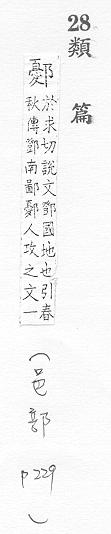 28
類篇
鄾於求切說文鄧國地也引春
秋傳鄧南鄙鄾人攻之文一
(邑部 p229)